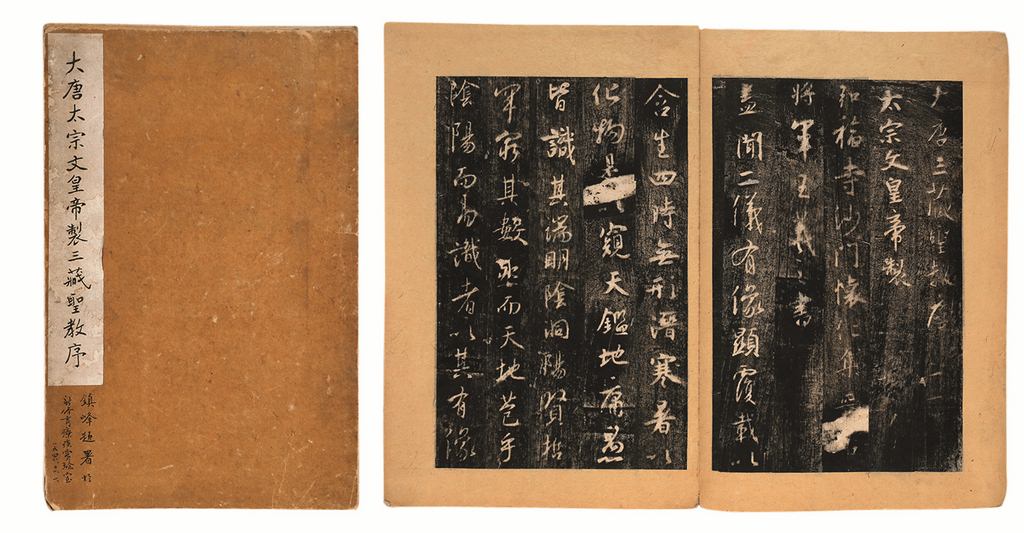 大唐太宗文皇帝製三藏聖教序
鎮峰題署於
大唐三藏聖教序
太宗文皇帝製
弘福寺沙門懷仁集
將軍王羲之書
蓋聞二儀有像顯覆載以
含生四時無形潛寒暑以
化物是以窺天鑑地庸愚
皆識其端明陰洞陽賢哲
罕窮其數然而天地苞乎
陰陽而易識者以其有像